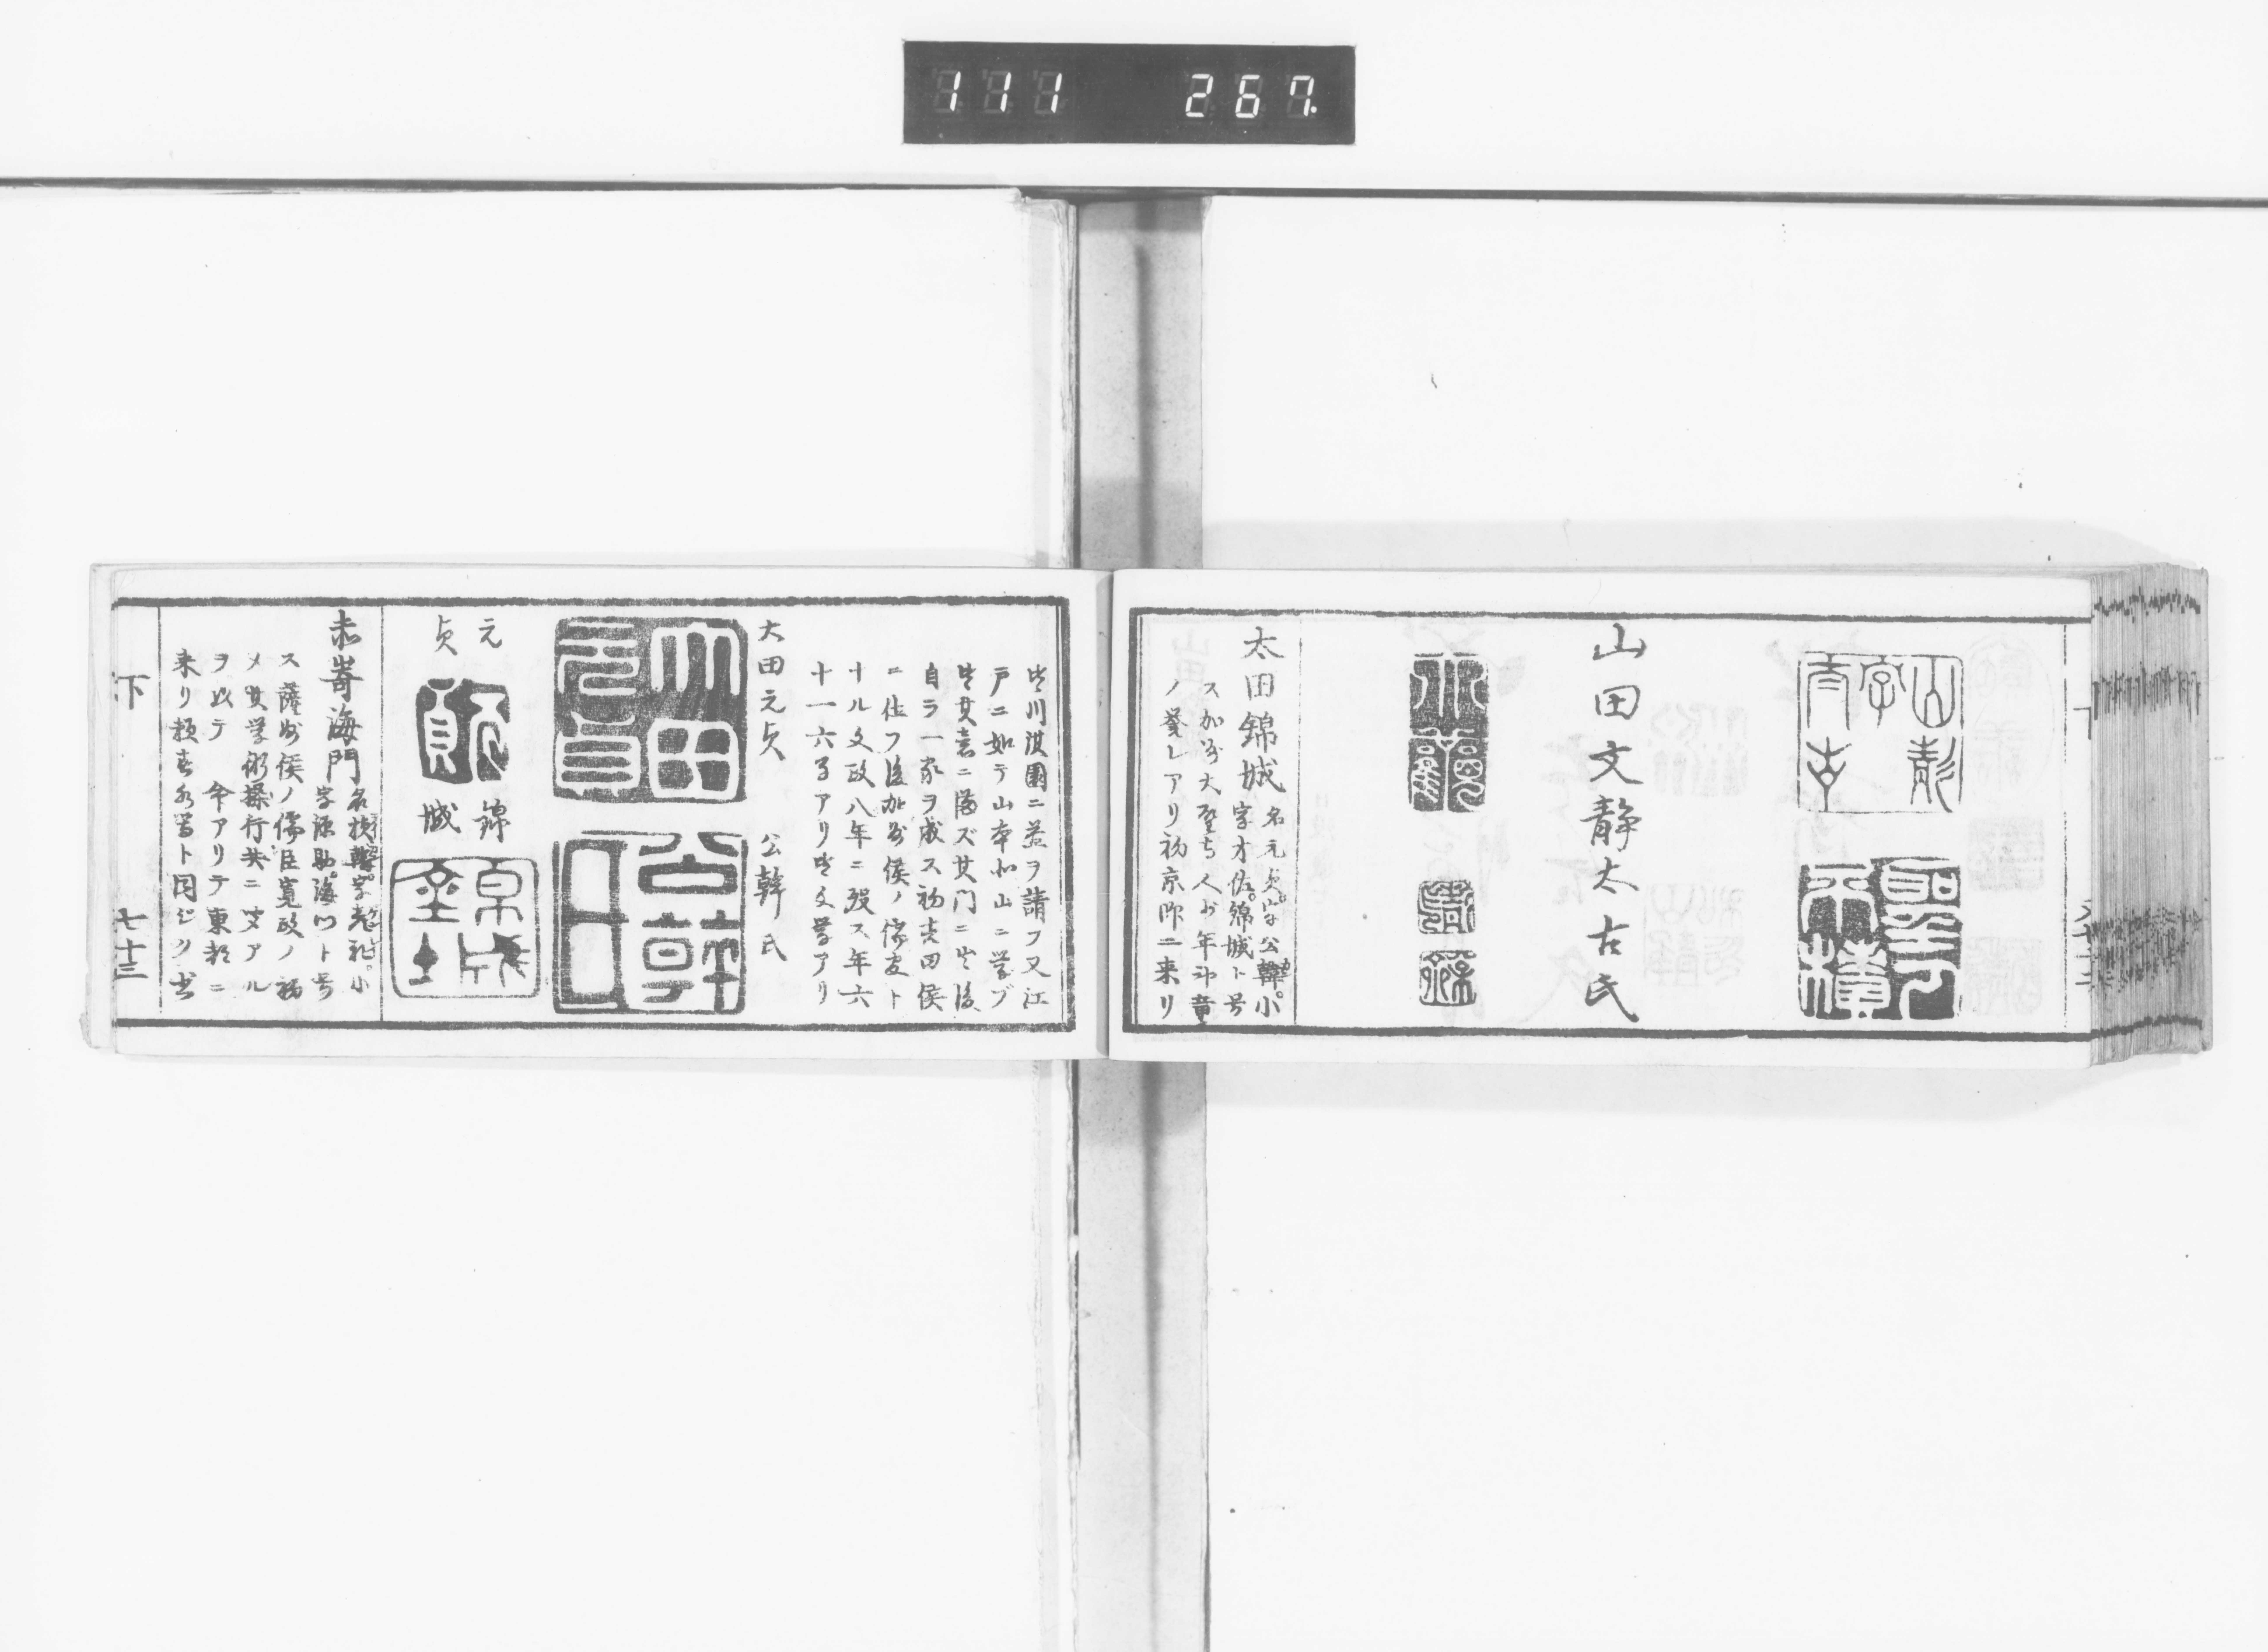 111 267.
山田文静太古氏
太田錦城
名元貞字公幹。小
字才佐。錦城ト号
ス加州大聖寺人少年神童
ノ誉レアリ初京師ニ来リ
皆川淇園ニ益ヲ請フ又江
戸ニ如テ山本北山ニ学ブ
皆其意ニ満ズ其門ニ出後
自ラ一家ヲ成ス初吉田侯
ニ仕フ後加州侯ノ儒官ト
ナル文政八年ニ歿ス年六
十一六子アリ皆文学アリ
大田元貞
公幹氏
元
貞
錦
城
赤嵜海門
名禎幹。字彦礼。小
字源助。海門ト号
ス薩州侯ノ儒臣寛政ノ初
メ其学術操行共ニ文アル
ヲ以テ 命アリテ東都ニ
来リ頼春水等ト同ジク
下
七十三